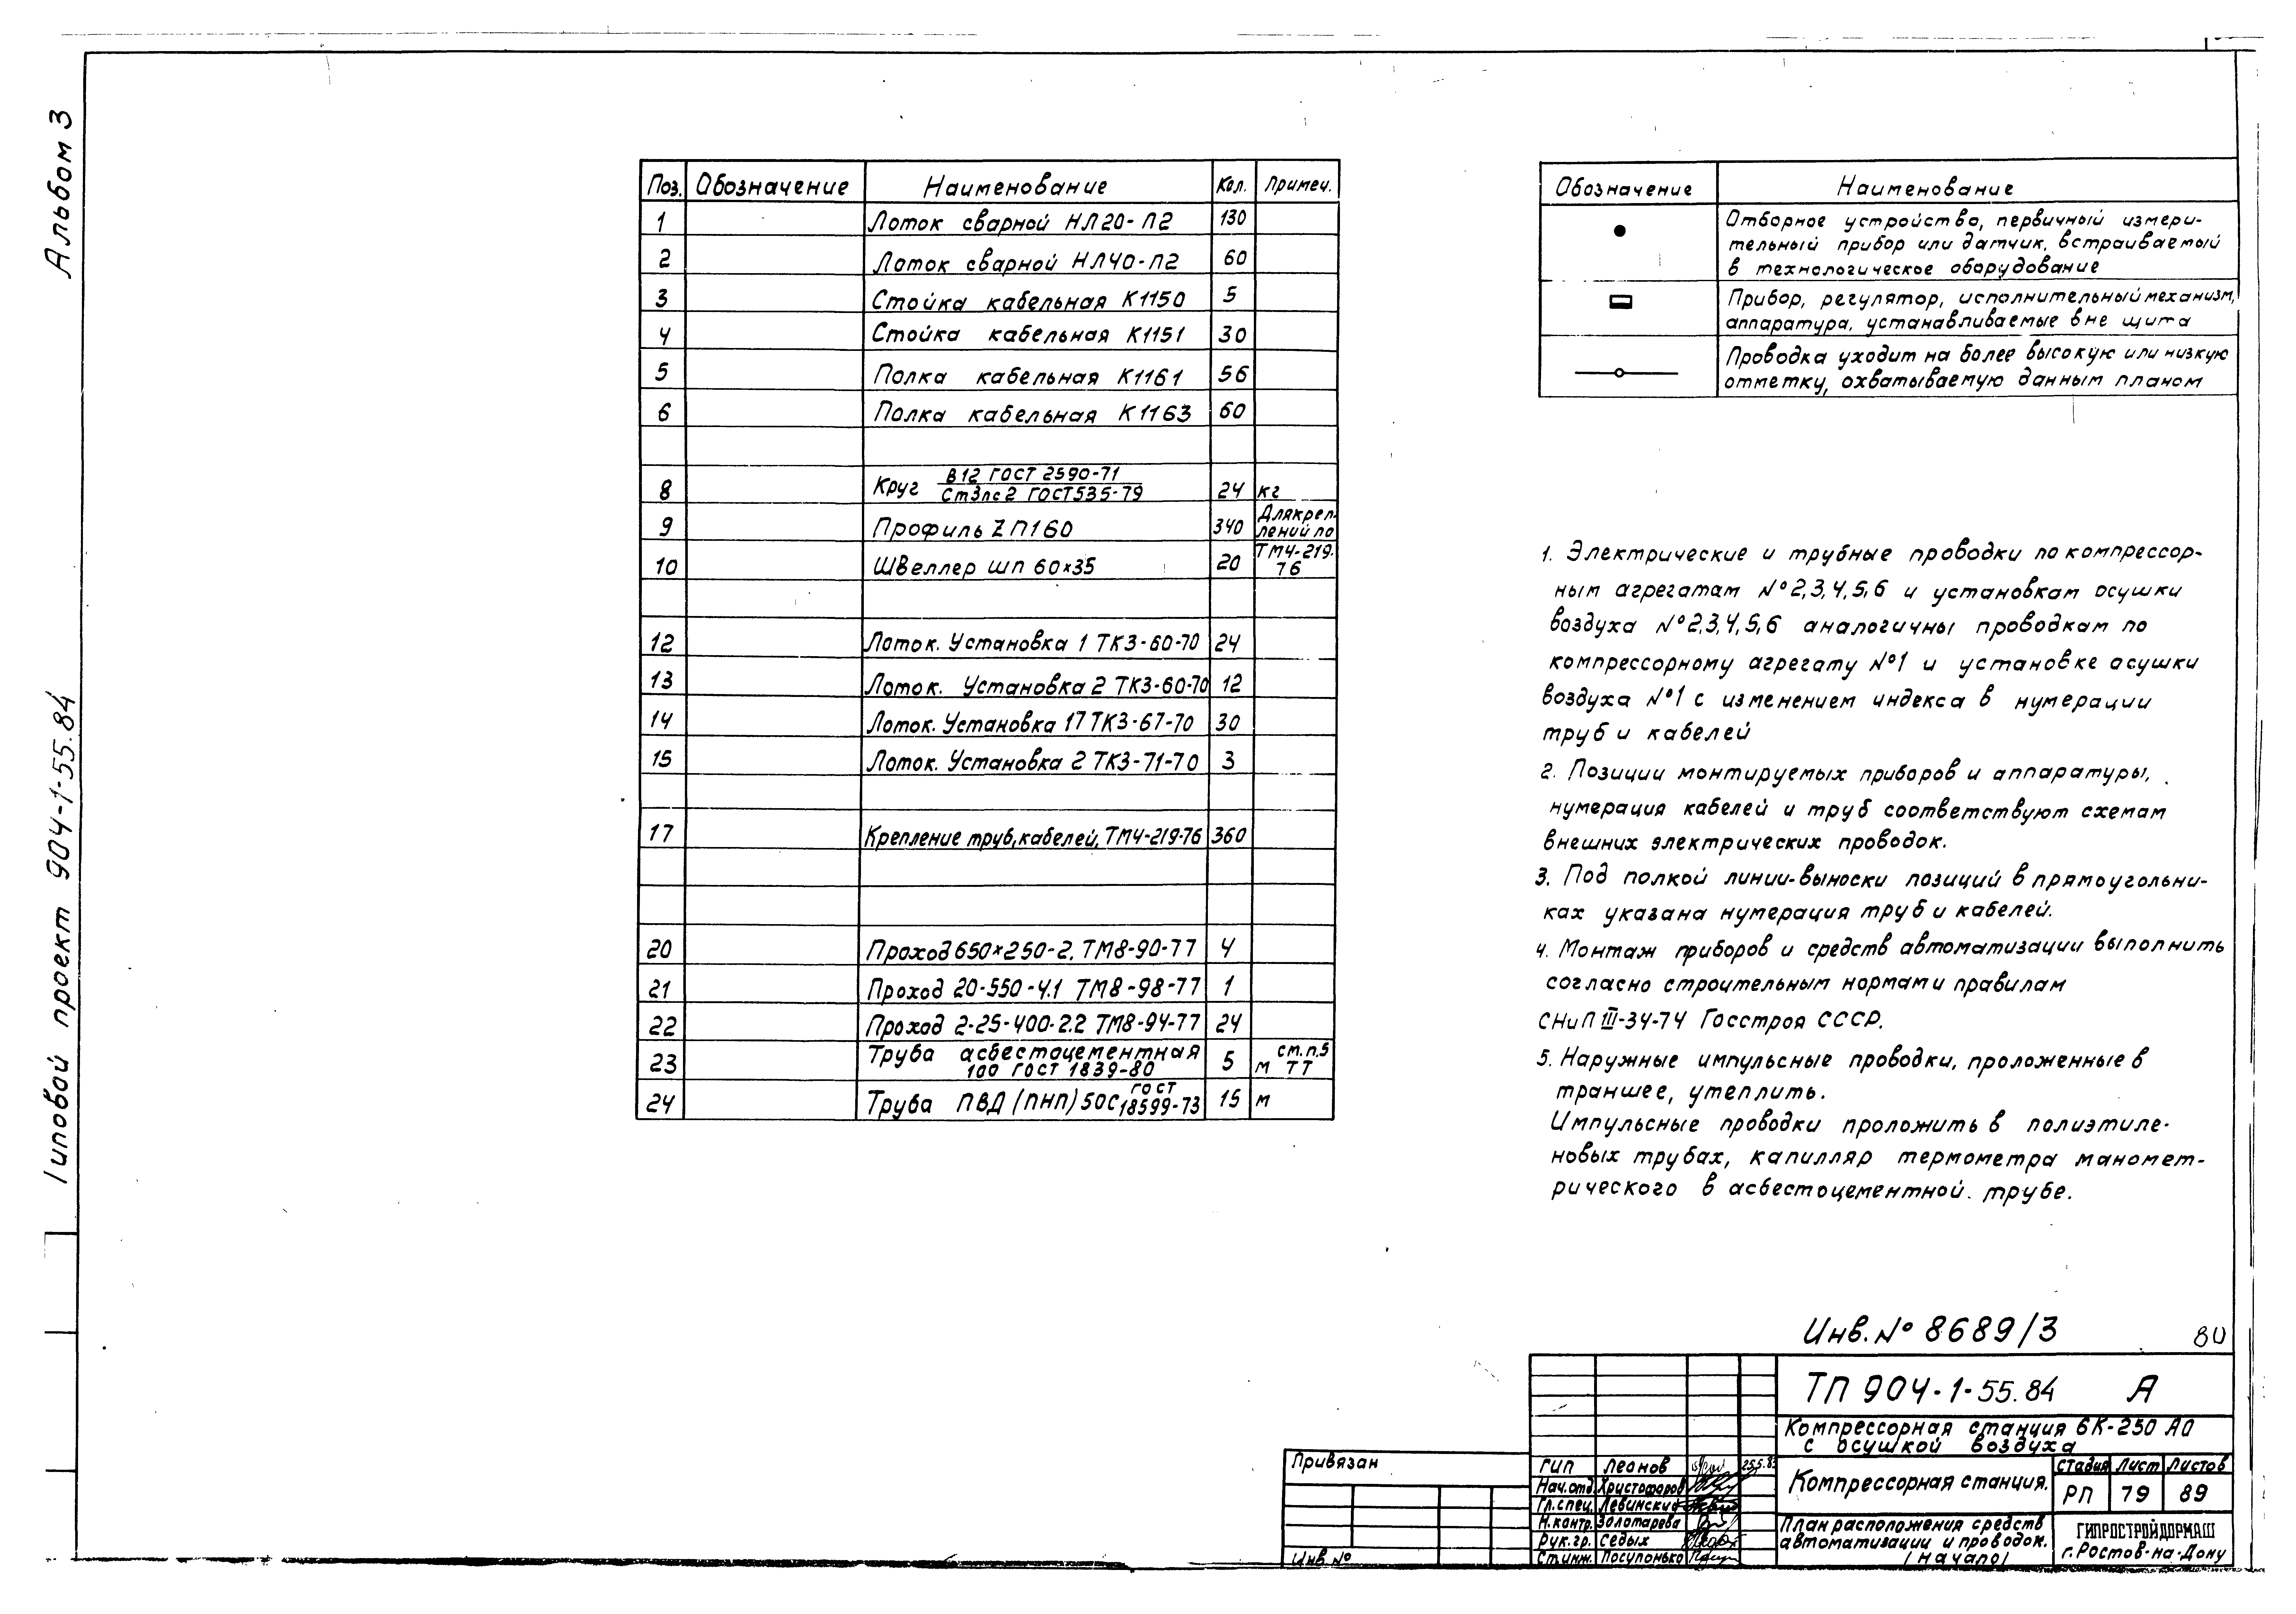 Альбом 3
Типовой проект 904-1-55.84
Поз. Обозначение Наименование Кол. Примеч.
1 Лоток сварной НЛ20-П2 130
2 Лоток сварной НЛ40-П2 60
3 Стойка кабельная К1150 5
4 Стойка кабельная К1151 30
5 Полка кабельная К1161 56
6 Полка кабельная К1163 60
8 Круг В12 ГОСТ 2590-71 / Ст3пс2 ГОСТ535-79 24 кг
9 Профиль Z П160 340 Для креп-
лений по
10 Швеллер шп 60×35 20 ТМ4-219-
76
12 Лоток. Установка 1 ТК3-60-70 24
13 Лоток. Установка 2 ТК3-60-70 12
14 Лоток. Установка 17 ТК3-67-70 30
15 Лоток. Установка 2 ТК3-71-70 3
17 Крепление труб, кабелей, ТМ4-219-76 360
20 Проход 650×250-2. ТМ8-90-77 4
21 Проход 20-550-4.1 ТМ8-98-77 1
22 Проход 2-25-400-2.2 ТМ8-94-77 24
23 Труба асбестоцементная 5 м см.п.5
100 ГОСТ 1839-80 ТТ
24 Труба ПВД (ПНП) 50С ГОСТ 18599-73 15 м
Обозначение Наименование
Отборное устройство, первичный измери-
тельный прибор или датчик, встраиваемый
в технологическое оборудование
Прибор, регулятор, исполнительный механизм,
аппаратура, устанавливаемые вне щита
Проводка уходит на более высокую или низкую
отметку, охватываемую данным планом
1. Электрические и трубные проводки по компрессор-
ным агрегатам №2,3,4,5,6 и установкам осушки
воздуха №2,3,4,5,6 аналогичны проводкам по
компрессорному агрегату №1 и установке осушки
воздуха №1 с изменением индекса в нумерации
труб и кабелей
2. Позиции монтируемых приборов и аппаратуры,
нумерация кабелей и труб соответствуют схемам
внешних электрических проводок.
3. Под полкой линии-выноски позиций в прямоугольни-
ках указана нумерация труб и кабелей.
4. Монтаж приборов и средств автоматизации выполнить
согласно строительным нормам и правилам
СНиП III-34-74 Госстроя СССР.
5. Наружные импульсные проводки, проложенные в
траншее, утеплить.
Импульсные проводки проложить в полиэтиле-
новых трубах, капилляр термометра маномет-
рического в асбестоцементной трубе.
Инв. № 8689/3 80
ТП 904-1-55.84 А
Компрессорная станция 6К-250 АО
с осушкой воздуха
Привязан
Инв. №
ГИП Леонов 25.5.83
Нач.отд. Христофоров
Гл.спец. Левинский
Н.контр. Золотарева
Рук.гр. Седых
Ст.инж. Посупонько
Компрессорная станция.
Стадия Лист Листов
РП 79 89
План расположения средств
автоматизации и проводок.
(начало)
ГИПРОСТРОЙДОРМАШ
г. Ростов-на-Дону